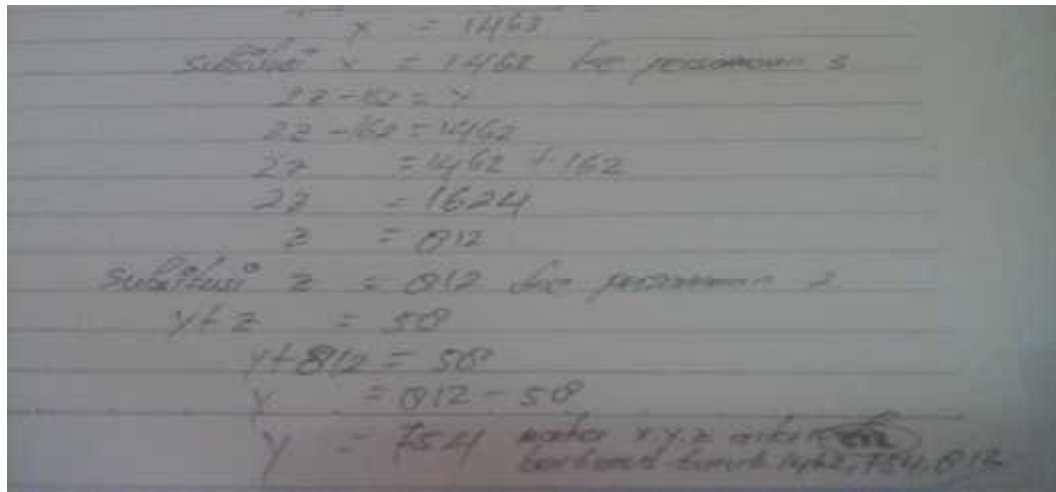 x = 1462
subtitusi x = 1462 ke persamaan 3
2z - 162 = x
2z - 162 = 1462
2z = 1462 + 162
2z = 1624
z = 812
subtitusi z = 812 ke persamaan 2
y + z = 58
y + 812 = 58
y = 812 - 58
y = 754 maka x.y.z
berturut turut 1462, 754, 812